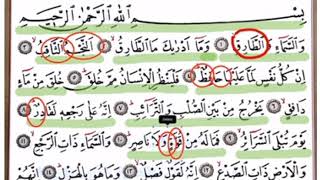 بِسْمِ اللَّهِ الرَّحْمَٰنِ الرَّحِيمِ
وَالسَّمَاءِ وَالطَّارِقِ ١ وَمَا أَدْرَاكَ مَا الطَّارِقُ ٢ النَّجْمُ الثَّاقِبُ ٣
إِن كُلُّ نَفْسٍ لَّمَّا عَلَيْهَا حَافِظٌ ٤ فَلْيَنظُرِ الْإِنسَانُ مِمَّ خُلِقَ ٥ خُلِقَ مِن مَّاءٍ
دَافِقٍ ٦ يَخْرُجُ مِن بَيْنِ الصُّلْبِ وَالتَّرَائِبِ ٧ إِنَّهُ عَلَىٰ رَجْعِهِ لَقَادِرٌ ٨
يَوْمَ تُبْلَى السَّرَائِرُ ٩ فَمَا لَهُ مِن قُوَّةٍ وَلَا نَاصِرٍ ١٠ وَالسَّمَاءِ ذَاتِ الرَّجْعِ ١١
وَالْأَرْضِ ذَاتِ الصَّدْعِ ١٢ إِنَّهُ لَقَوْلٌ فَصْلٌ ١٣ وَمَا هُوَ بِالْهَزْلِ ١٤